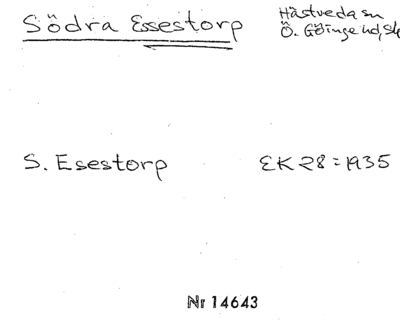 Södra Essestorp
Hästveda sn
Ö. Göinge hd, Sk
S. Esestorp EK 28 = 1935
Nr 14643